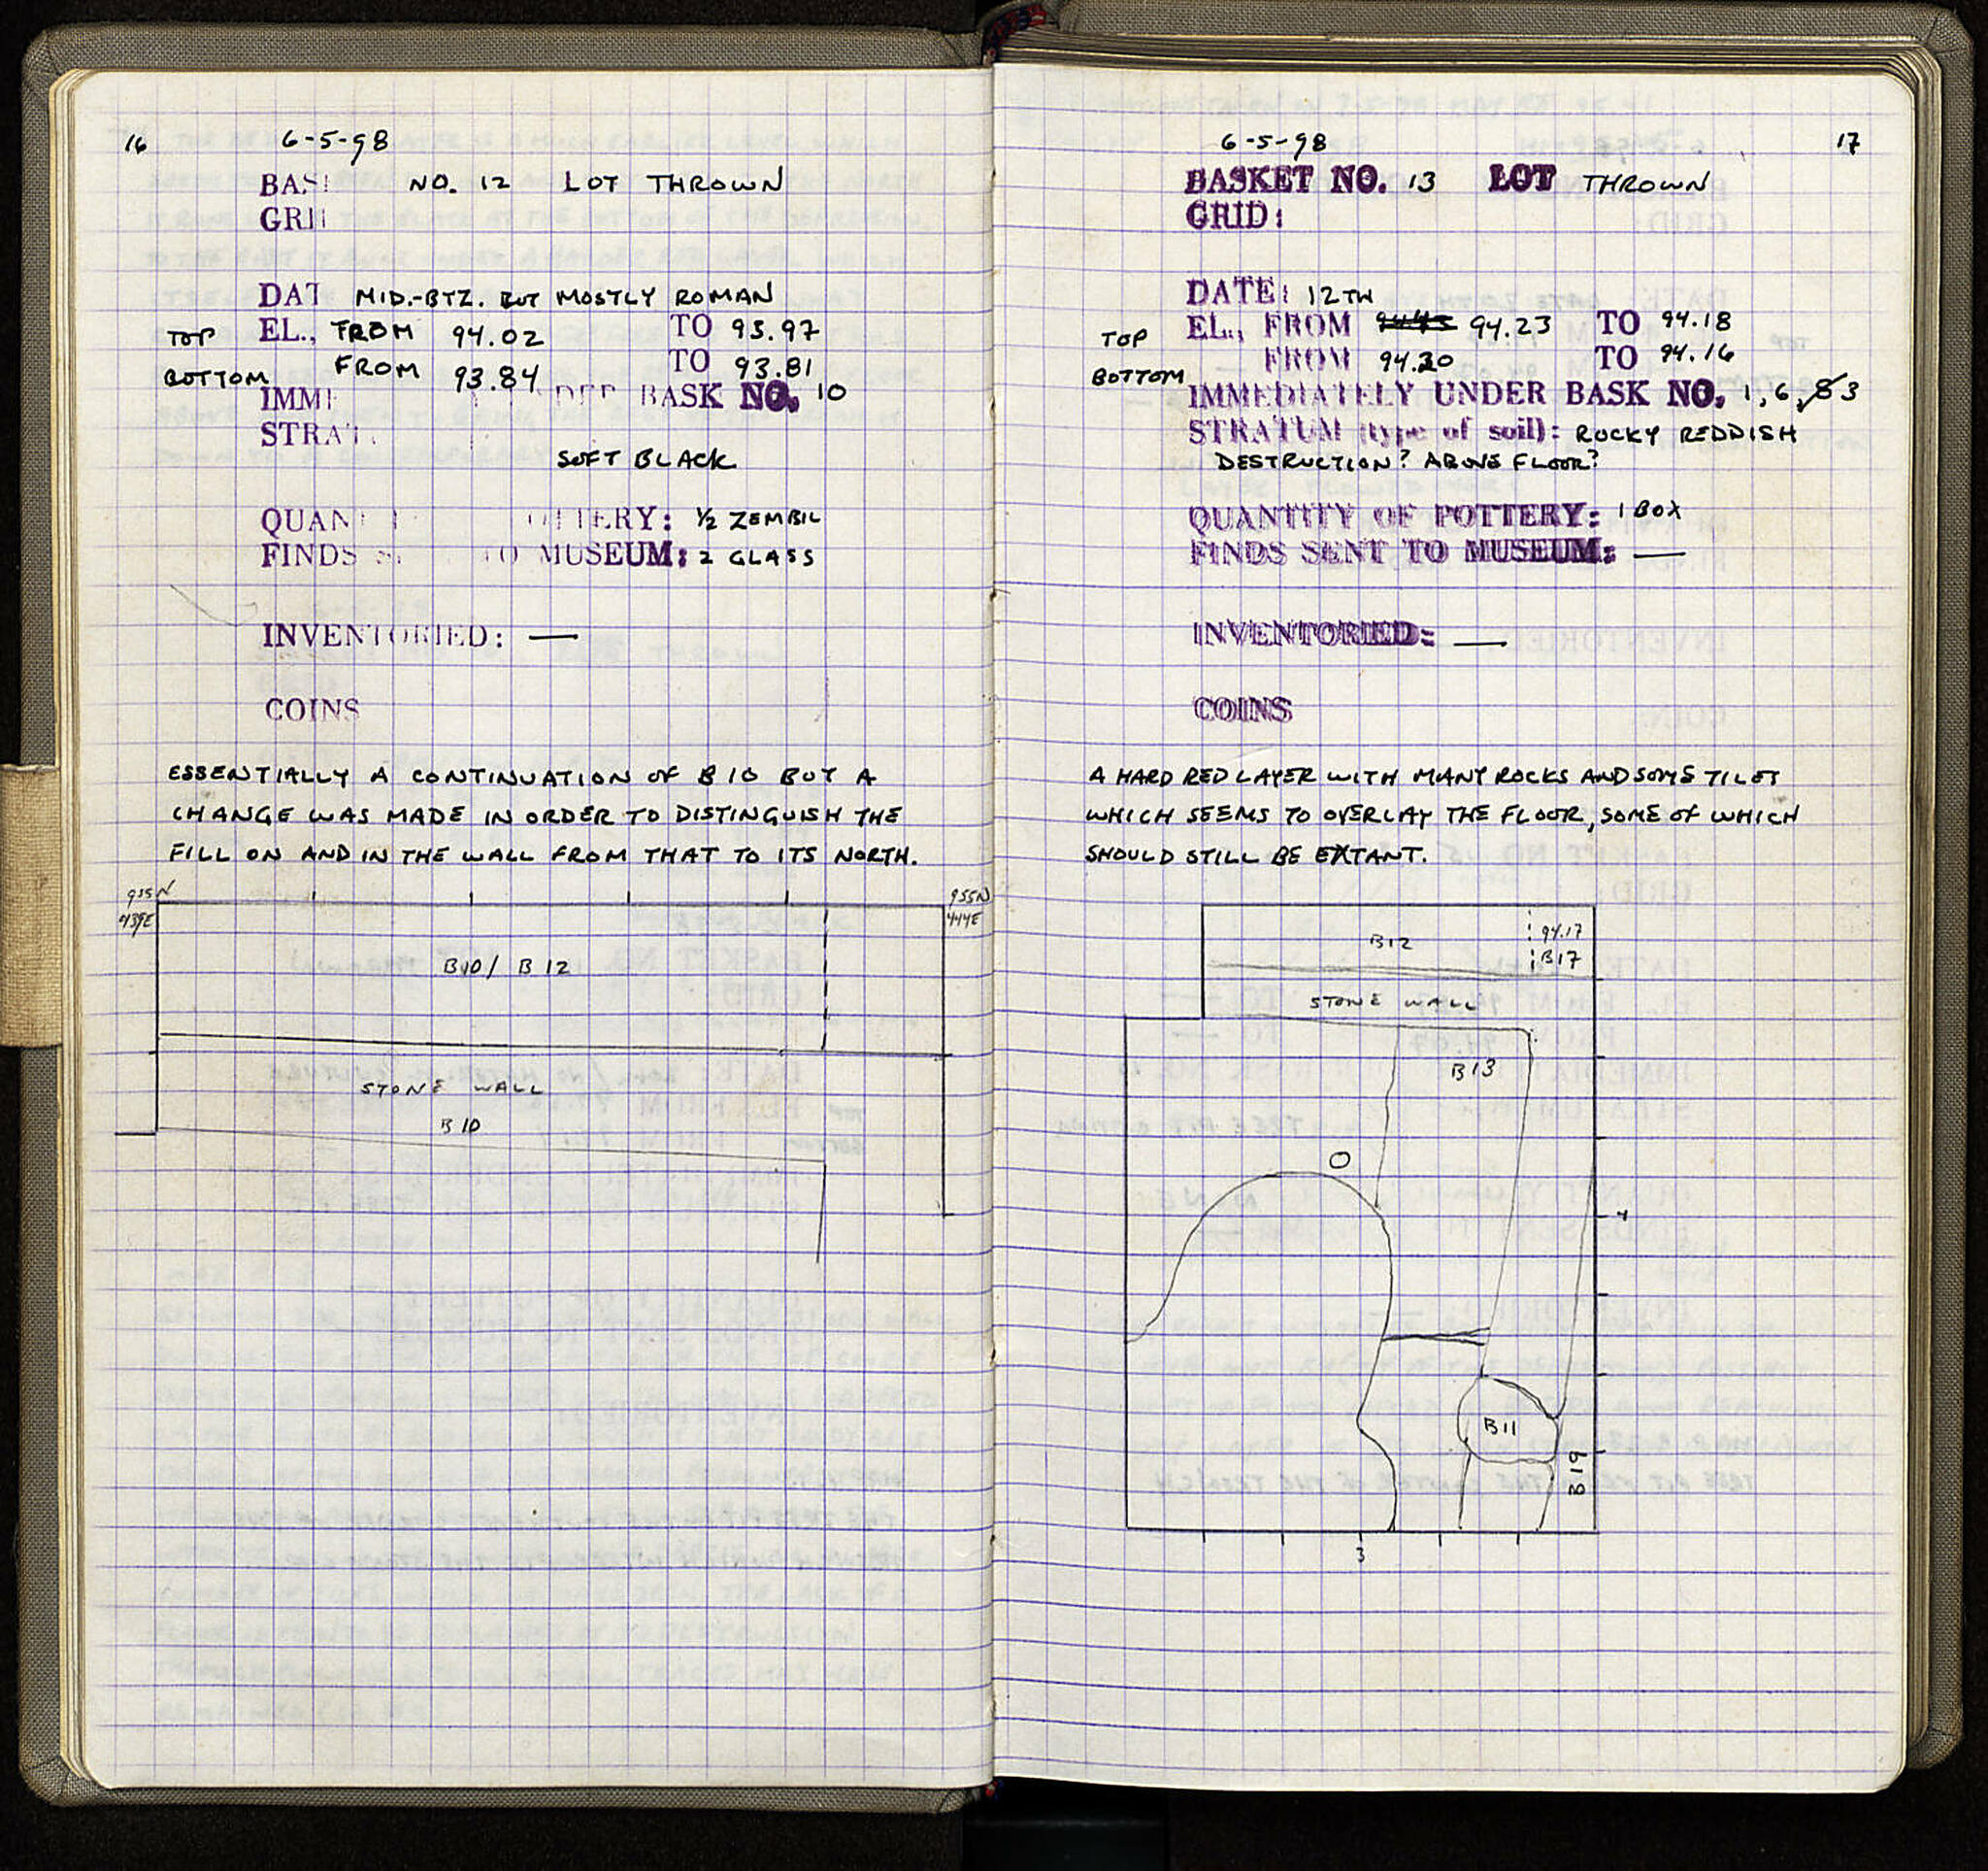 16 6-5-98
BAS NO. 12 LOT THROWN
GRI
DAT MID.-BTZ. BUT MOSTLY ROMAN
TOP EL., FROM 94.02 TO 93.97
BOTTOM FROM 93.84 TO 93.81
IMM DER BASK NO. 10
STRAT
SOFT BLACK
QUAN OTTERY: 1/2 ZEMBIL
FINDS S TO MUSEUM: 2 GLASS
INVENTORIED: —
COINS
ESSENTIALLY A CONTINUATION OF B10 BUT A
CHANGE WAS MADE IN ORDER TO DISTINGUISH THE
FILL ON AND IN THE WALL FROM THAT TO ITS NORTH.
955N 955N
439E 444E
B10/ B12
STONE WALL
B10
6-5-98 17
BASKET NO. 13 LOT THROWN
GRID:
DATE: 12TH
TOP EL., FROM 94.23 TO 94.18
BOTTOM FROM 94.20 TO 94.16
IMMEDIATELY UNDER BASK NO. 1, 6, 8 3
STRATUM (type of soil): ROCKY REDDISH
DESTRUCTION? ABOVE FLOOR?
QUANTITY OF POTTERY: 1 BOX
FINDS SENT TO MUSEUM: —
INVENTORIED: —
COINS
A HARD RED LAYER WITH MANY ROCKS AND SOME TILES
WHICH SEEMS TO OVERLAY THE FLOOR, SOME OF WHICH
SHOULD STILL BE EXTANT.
B12 94.17
B17
STONE WALL
B13
4
B11
B19
3